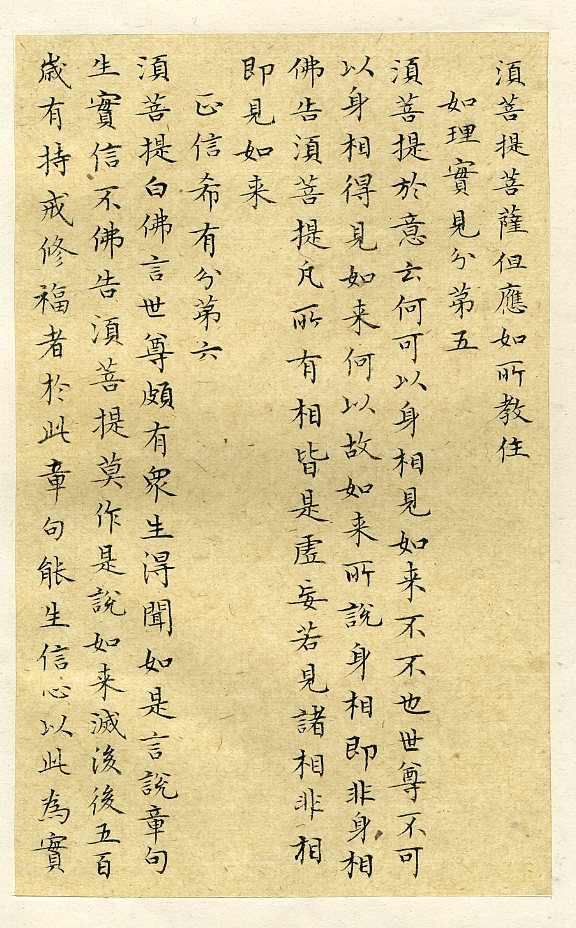 須菩提菩薩但應如所教住
如理實見分第五
須菩提於意云何可以身相見如来不不也世尊不可
以身相得見如来何以故如来所說身相即非身相
佛告須菩提凡所有相皆是虛妄若見諸相非相
即見如来
正信希有分第六
須菩提白佛言世尊頗有眾生得聞如是言說章句
生實信不佛告須菩提莫作是說如来滅後後五百
歲有持戒修福者於此章句能生信心以此為實